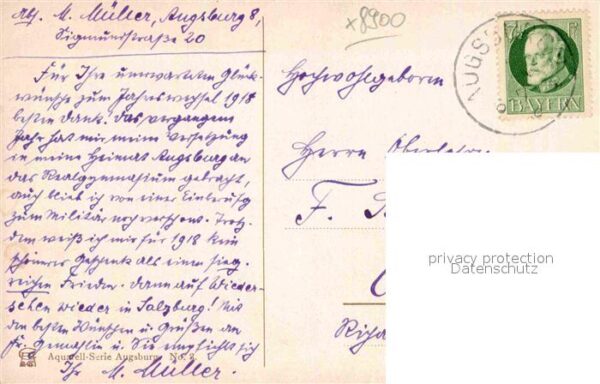 Abs. M. Müller, Augsburg 8,
Sigmundstraße 20
x8900
Für Ihre unerwarteten Glück-
wünsche zum Jahreswechsel 1918
besten Dank. Das vergangene
Jahr hat mir meine Versetzung
in meine Heimat Augsburg an
das Realgymnasium gebracht,
auch blieb ich von einer Einberufg
zum Militär noch verschont. Trotz-
dem weiß ich mir für 1918 kein
schöneres Geschenk als einen sieg-
reichen Frieden. Dann auf Wieder-
sehen wieder in Salzburg! Mit
den besten Wünschen u. Grüßen an
Fr. Gemahlin u. Sie empfiehlt sich
Ihr M. Müller.
Aquarell-Serie Augsburg No. 3.
Hochwohlgeboren
Herrn
F.
AUGSB
BAYERN
privacy protection
Datenschutz